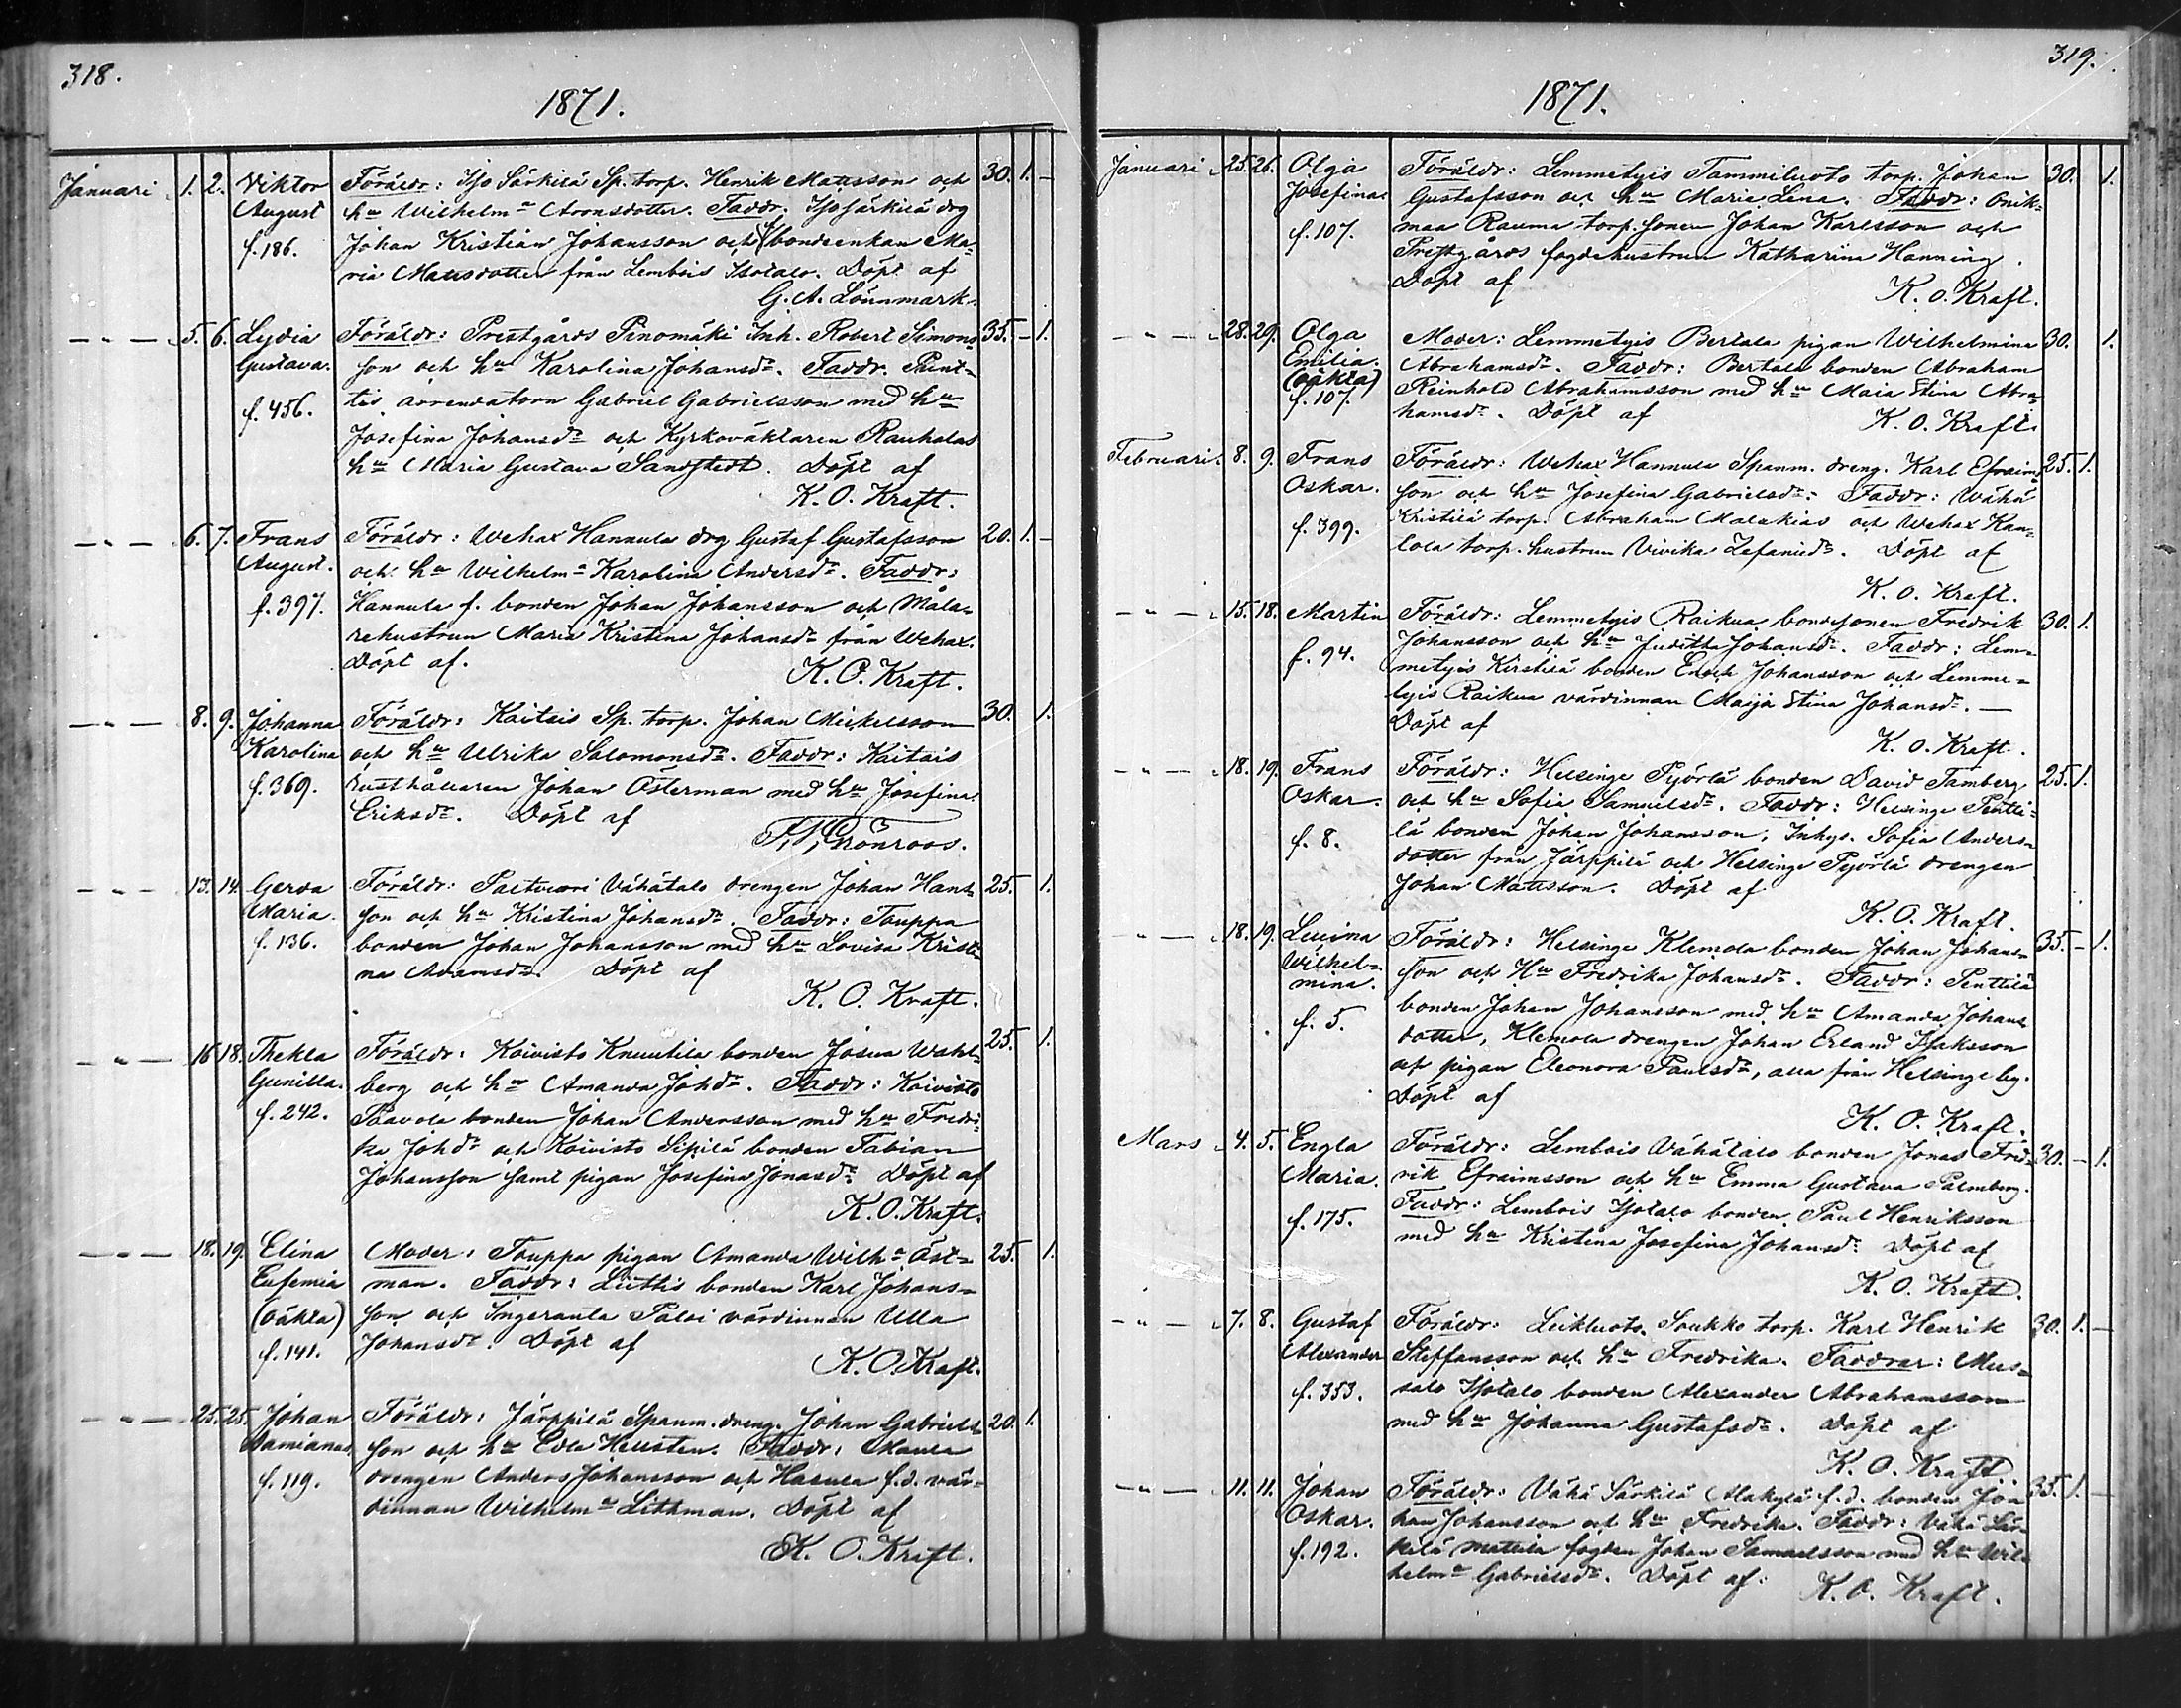 318.
1871.
Januari 1. 2. Viktor Föräldr: Iso Särkilä Sp. torp. Henrik Mattsson och 30. 1. –
August hu Wilhelma Aronsdotter. Faddr. Iso Särkilä drg
f. 186. Johan Kristian Johansson och bondeenkan Ma-
ria Mattsdotter från Lembois Isotalo. Döpt af
G. A. Lönnmark.
— " — 5. 6. Lydia Föräldr: Prestgårds Pinomäki Inh. Robert Simons- 35. – 1.
Gustava. son och hu Karolina Johansdr. Faddr. Punt-
f. 456. tis arrendatorn Gabriel Gabrielsson med hu
Josefina Johansdr och Kyrkoväktaren Rauhalas
hu Maria Gustava Sandstedt. Döpt af
K. O. Kraft.
— " — 6. 7. Frans Föräldr: Wehax Hannula drg Gustaf Gustafsson 20. 1. –
August. och hu Wilhelma Karolina Andersdr. Faddr:
f. 397. Hannula f. bonden Johan Johansson och Måla-
rehustrun Maria Kristina Johansdr från Wehax.
Döpt af.
K. O. Kraft.
— " — 8. 9. Johanna Föräldr: Kaitais Sp. torp. Johan Mickelsson 30. 1.
Karolina och hu Ulrika Salomonsdr. Faddr: Kaitais
f. 369. rusthållaren Johan Österman med hu Josefina
Eriksdr. Döpt af
Grönroos.
— " — 13. 14. Gerda Föräldr: Paltvuori Vähätalo drengen Johan Hans- 25. 1.
Maria. son och hu Kristina Johansdr. Faddr: Touppa
f. 136. bonden Johan Johansson med hu Lovisa Kristi-
na Adamsdr. Döpt af
K. O. Kraft.
— " — 16 18. Thekla Föräldr: Koivisto Knuutila bonden Josua Wahl- 25. 1.
Gunilla. berg och hu Amanda Johdr. Faddr: Koivisto
f. 242. Paavola bonden Johan Andersson med hu Fredri-
ka Johdr och Koivisto Sipilä bonden Fabian
Johansson samt pigan Josefina Jonasdr Döpt af
K. O. Kraft.
— " — 18. 19. Elina Moder: Touppa pigan Amanda Wilha Öst- 25. 1.
Eufemia man. Faddr: Luttis bonden Karl Johans-
(oäkta) son och Ingeranla Paloi värdinnan Ulla
f. 141. Johansdr. Döpt af
K. O. Kraft.
— " — 25. 25. Johan Föräldr: Järppilä Spanm. dreng. Johan Gabriels- 20. 1.
Damianus son och hu Edla Hellsten. Faddr: Maula
f. 119. drengen Anders Johansson och Hasula f.d. vär-
dinnan Wilhelma Lithman. Döpt af
K. O. Kraft.
319.
1871.
Januari 25. 26. Olga Föräldr: Lemmetyis Tammiluoto torp. Johan 30. 1.
Josefina. Gustafsson och hu Maria Lena. Faddr: Onik-
f. 107. maa Rauma torp. sonen Johan Karlsson och
Prestgårds fogdehustrun Katharina Hanning.
Döpt af
K. O. Kraft.
— " — 28. 29. Olga Moder: Lemmetyis Bertala pigan Wilhelmina 30. 1.
Emilia. Abrahamsdr. Faddr: Bertala bonden Abraham
(oäkta) Reinhold Abrahamsson med hu Maia Stina Abra-
f. 107. hamsdr. Döpt af
K. O. Kraft.
Februari. 8. 9. Frans Föräldr: Wehax Hannula Spanm. dreng. Karl Efraims- 25. 1.
Oskar. son och hu Josefina Gabrielsdr. Faddr: Wähä
f. 399. Kristilä torp. Abraham Malakias och Wehax Kan-
lola torp. hustrun Vivika Zefanidr. Döpt af
K. O. Kraft.
— " — 15. 18. Martin Föräldr: Lemmetyis Raikua bondesonen Fredrik 30. 1.
f. 94. Johansson och hu Juditha Johansdr. Faddr: Lem-
metyis Kirstilä bonden Enoch Johansson och Lemme-
tyis Raikua värdinnan Maija Stina Johansdr. —
Döpt af
K. O. Kraft.
— " — 18. 19. Frans Föräldr: Helsinge Pyörlä bonden David Tamberg 25. 1.
Oskar. och hu Sofia Samuelsdr. Faddr: Helsinge Pentti-
f. 8. lä bonden Johan Johansson, Inhys. Sofia Anders-
dotter från Järppilä och Helsinge Pyörlä drengen
Johan Mattsson. Döpt af
K. O. Kraft.
— " — 18. 19. Lucina Föräldr: Helsinge Klemola bonden Johan Johans- 35. – 1.
Wilhel- son och Hu Fredrika Johansdr. Faddr: Penttilä
mina.
f. 5. bonden Johan Johansson med hu Amanda Johans-
dotter, Klemola drengen Johan Erland Isaksson
och pigan Eleonora Paulsdr, alla från Helsinge by.
Döpt af
K. O. Kraft.
Mars 4. 5. Engla Föräldr: Lembois Vähätalo bonden Jonas Fred- 30. – 1.
Maria. rik Efraimsson och hu Emma Gustava Palmberg.
f. 175. Faddr: Lembois Isotalo bonden Paul Henriksson
med hu Kristina Josefina Johansdr. Döpt af
K. O. Kraft.
— " — 7. 8. Gustaf Föräldr: Leikluoto Soukko torp. Karl Henrik 30. 1. —
Alexander Steffansson och hu Fredrika. Faddrar: Mus-
f. 353. salo Isotalo bonden Alexander Abrahamsson
med hu Johanna Gustafsdr. Döpt af
K. O. Kraft.
— " — 11. 11. Johan Föräldr: Vähä Särkilä Alakylä f.d. bonden Jo- 35. 1. –
Oskar. han Johansson och hu Fredrika. Faddr: Vähä Sär-
f. 192. kilä Mattila fogden Johan Samuelsson med hu Wil-
helma Gabrielsdr. Döpt af: K. O. Kraft.